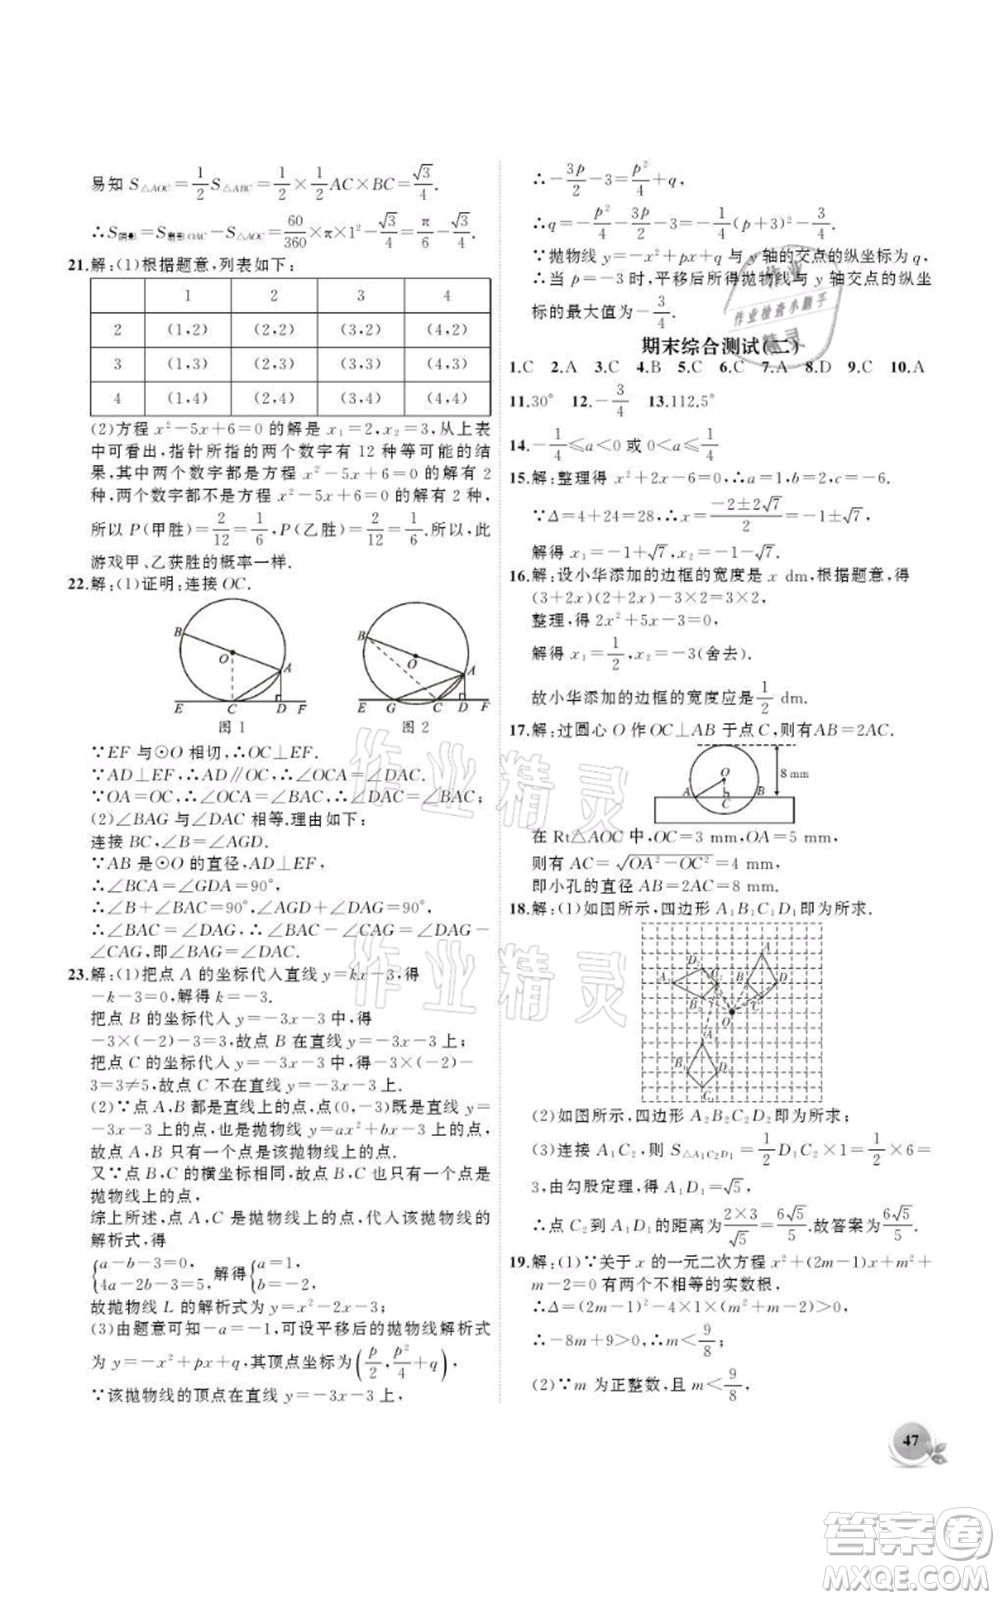 易知 S△AOC=1/2 S△ABC=1/2×1/2 AC×BC=√3/4.
∴S阴影=S扇形OAC−S△AOC=60/360×π×1²−√3/4=π/6−√3/4.
21.解:(1)根据题意,列表如下:
1 2 3 4
2 (1,2) (2,2) (3,2) (4,2)
3 (1,3) (2,3) (3,3) (4,3)
4 (1,4) (2,4) (3,4) (4,4)
(2)方程 x²−5x+6=0 的解是 x₁=2,x₂=3,从上表
中可看出,指针所指的两个数字有 12 种等可能的结
果,其中两个数字都是方程 x²−5x+6=0 的解有 2
种,两个数字都不是方程 x²−5x+6=0 的解有 2 种,
所以 P(甲胜)=2/12=1/6,P(乙胜)=2/12=1/6.所以,此
游戏甲、乙获胜的概率一样.
22.解:(1)证明:连接 OC.
B O A E C D F
B O A E G C D F
图 1 图 2
∵EF 与⊙O 相切,∴OC⊥EF.
∵AD⊥EF,∴AD∥OC,∴∠OCA=∠DAC.
∵OA=OC,∴∠OCA=∠BAC,∴∠BAC=∠DAC;
(2)∠BAG 与∠DAC 相等.理由如下:
连接 BC,∠B=∠AGD.
∵AB 是⊙O 的直径,AD⊥EF,
∴∠BCA=∠GDA=90°,
∴∠B+∠BAC=90°,∠AGD+∠DAG=90°,
∴∠BAC=∠DAG,∴∠BAC−∠CAG=∠DAG−∠
CAG,即∠BAG=∠DAC.
23.解:(1)把点 A 的坐标代入直线 y=kx−3,得
−k−3=0,解得 k=−3.
把点 B 的坐标代入 y=−3x−3 中,得
−3×(−2)−3=3,故点 B 在直线 y=−3x−3 上;
把点 C 的坐标代入 y=−3x−3 中,得−3×(−2)−
3=3≠5,故点 C 不在直线 y=−3x−3 上.
(2)∵点 A,B 都是直线上的点,点(0,−3)既是直线 y=
−3x−3 上的点,也是抛物线 y=ax²+bx−3 上的点,
故点 A,B 只有一个点是抛物线上的点.
又∵点 B,C 的横坐标相同,故点 B,C 只有一个点是
抛物线上的点,
综上所述,点 A,C 是抛物线上的点,代入该抛物线的
解析式,得
{a−b−3=0, 4a−2b−3=5, 解得{a=1, b=−2.
故抛物线 L 的解析式为 y=x²−2x−3;
(3)由题意可知−a=−1,可设平移后的抛物线解析式
为 y=−x²+px+q,其顶点坐标为(p/2,p²/4+q),
∵该抛物线的顶点在直线 y=−3x−3 上,
∴−3p/2−3=p²/4+q,
∴q=−p²/4−3p/2−3=−1/4(p+3)²−3/4.
∵抛物线 y=−x²+px+q 与 y 轴的交点的纵坐标为q,
∴当 p=−3 时,平移后所得抛物线与 y 轴交点的纵坐
标的最大值为−3/4.
期末综合测试(二)
1.C 2.A 3.C 4.B 5.C 6.C 7.A 8.D 9.C 10.A
11.30° 12.−3/4 13.112.5°
14.−1/4≤a<0 或 0<a≤1/4
15.解:整理得 x²+2x−6=0,∴a=1,b=2,c=−6.
∵Δ=4+24=28,∴x=(−2±2√7)/2=−1±√7,
解得 x₁=−1+√7,x₂=−1−√7.
16.解:设小华添加的边框的宽度是 x dm,根据题意,得
(3+2x)(2+2x)−3×2=3×2,
整理,得 2x²+5x−3=0,
解得 x₁=1/2,x₂=−3(舍去).
故小华添加的边框的宽度应是1/2 dm.
17.解:过圆心 O 作 OC⊥AB 于点 C,则有 AB=2AC.
O A C B 8 mm
在 Rt△AOC 中,OC=3 mm,OA=5 mm,
则有 AC=√(OA²−OC²)=4 mm,
即小孔的直径 AB=2AC=8 mm.
18.解:(1)如图所示,四边形 A₁B₁C₁D₁ 即为所求.
(2)如图所示,四边形 A₂B₂C₂D₂ 即为所求;
(3)连接 A₁C₂,则 S△A₁C₂D₁=1/2 D₁C₂×A₁C₂=1/2×1×6=
3,由勾股定理,得 A₁D₁=√5,
∴点 C₂ 到 A₁D₁ 的距离为(2×3)/√5=6√5/5.故答案为6√5/5.
19.解:(1)∵关于 x 的一元二次方程 x²+(2m−1)x+m²+
m−2=0 有两个不相等的实数根,
∴Δ=(2m−1)²−4×1×(m²+m−2)>0,
∴−8m+9>0,∴m<9/8;
(2)∵m 为正整数,且 m<9/8,
47
作业精灵
作业精灵
作业
作业检查小助手
精灵
答案卷
MXQE.COM